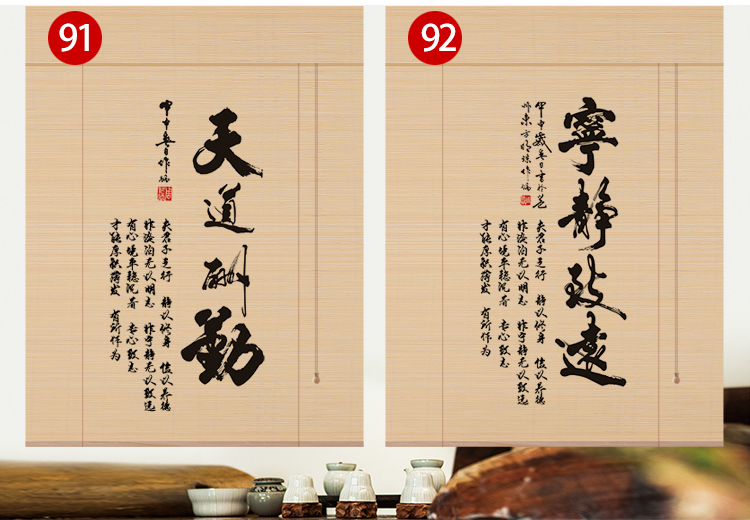 91
天道酬勤
夫君子之行 静以修身 俭以养德
非淡泊无以明志 非宁静无以致远
有心境平稳沉着 专心致志
才能厚积薄发 有所作为
92
寧静致遠
夫君子之行 静以修身 俭以养德
非淡泊无以明志 非宁静无以致远
有心境平稳沉着 专心致志
才能厚积薄发 有所作为